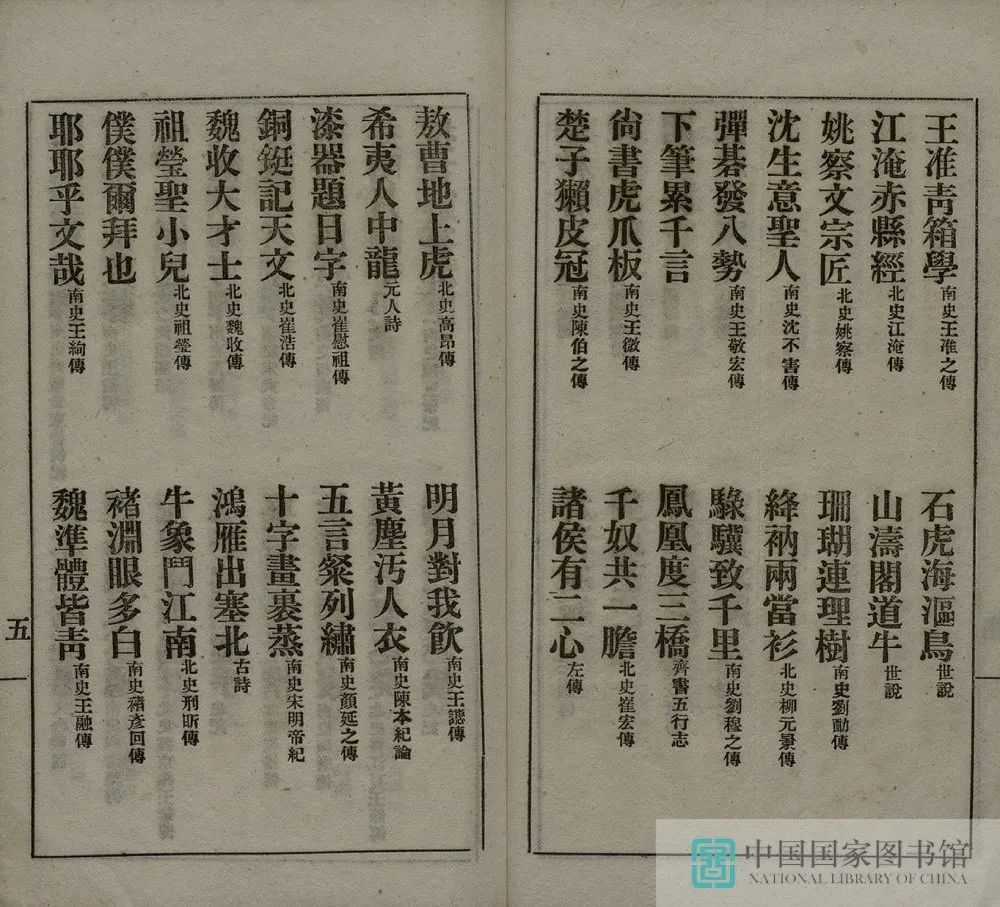 王准青箱學南史王准之傳
石虎海漚鳥世說
江淹赤縣經北史江淹傳
山濤閣道牛世說
姚察文宗匠北史姚察傳
珊瑚連理樹南史劉勔傳
沈生意聖人南史沈不害傳
絳衲兩當衫北史柳元景傳
彈碁發八勢南史王敬宏傳
騄驥致千里南史劉穆之傳
下筆累千言
鳳凰度三橋齊書五行志
尙書虎爪板南史王微傳
千奴共一膽北史崔宏傳
楚子獺皮冠南史陳伯之傳
諸侯有二心左傳
敖曹地上虎北史高昂傳
明月對我飮南史王譓傳
希夷人中龍元人詩
黃塵汚人衣南史陳本紀論
漆器題日字南史崔慰祖傳
五言粲列繡南史顏延之傳
銅鋌記天文北史崔浩傳
十字畫裹蒸南史宋明帝紀
魏收大才士北史魏收傳
鴻雁出塞北古詩
祖瑩聖小兒北史祖瑩傳
牛象鬥江南北史刑昕傳
僕僕爾拜也
褚淵眼多白南史褚彥回傳
耶耶乎文哉南史王絢傳
魏準體皆靑南史王融傳
五
中国国家图书馆
NATIONAL LIBRARY OF CHINA